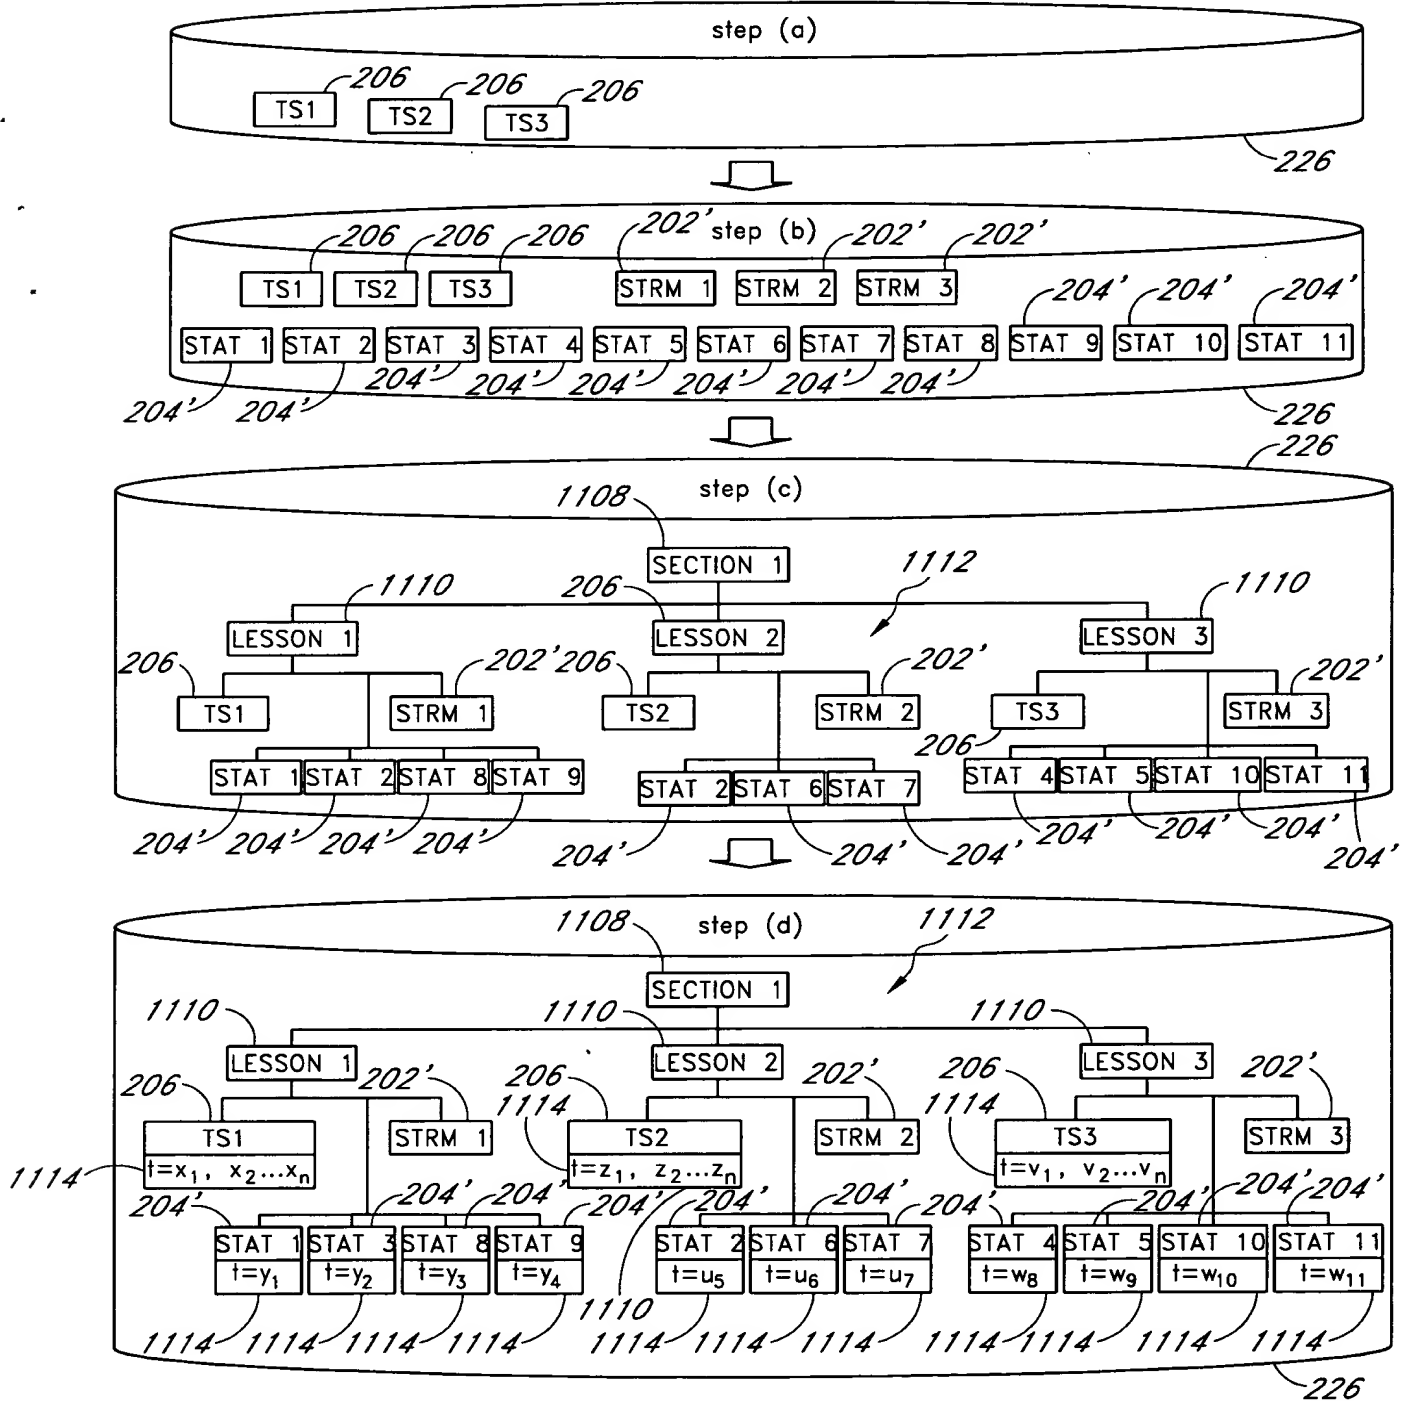 step (a)
206 206 206
TS1 TS2 TS3
226
step (b)
206 206 206 202' 202' 202'
TS1 TS2 TS3 STRM 1 STRM 2 STRM 3
204' 204' 204'
STAT 1 STAT 2 STAT 3 STAT 4 STAT 5 STAT 6 STAT 7 STAT 8 STAT 9 STAT 10 STAT 11
204' 204' 204' 204' 204' 204'
204' 204'
226
226
step (c)
1108
SECTION 1
1110 206 1112 1110
LESSON 1 LESSON 2 LESSON 3
206 202' 206 202' 202'
TS1 STRM 1 TS2 STRM 2 TS3 STRM 3
206
STAT 1 STAT 2 STAT 8 STAT 9 STAT 2 STAT 6 STAT 7 STAT 4 STAT 5 STAT 10 STAT 11
204' 204' 204' 204' 204' 204' 204' 204' 204' 204' 204'
step (d)
1108 1112
SECTION 1
1110 1110 1110
LESSON 1 LESSON 2 LESSON 3
206 202' 206 202' 206 202'
1114 1114
TS1 STRM 1 TS2 STRM 2 TS3 STRM 3
1114 t=x₁, x₂...xₙ t=z₁, z₂...zₙ t=v₁, v₂...vₙ
204' 204' 204' 204' 204' 204' 204' 204' 204' 204' 204'
STAT 1 STAT 3 STAT 8 STAT 9 STAT 2 STAT 6 STAT 7 STAT 4 STAT 5 STAT 10 STAT 11
t=y₁ t=y₂ t=y₃ t=y₄ t=u₅ t=u₆ t=u₇ t=w₈ t=w₉ t=w₁₀ t=w₁₁
1110
1114 1114 1114 1114 1114 1114 1114 1114 1114 1114 1114
226